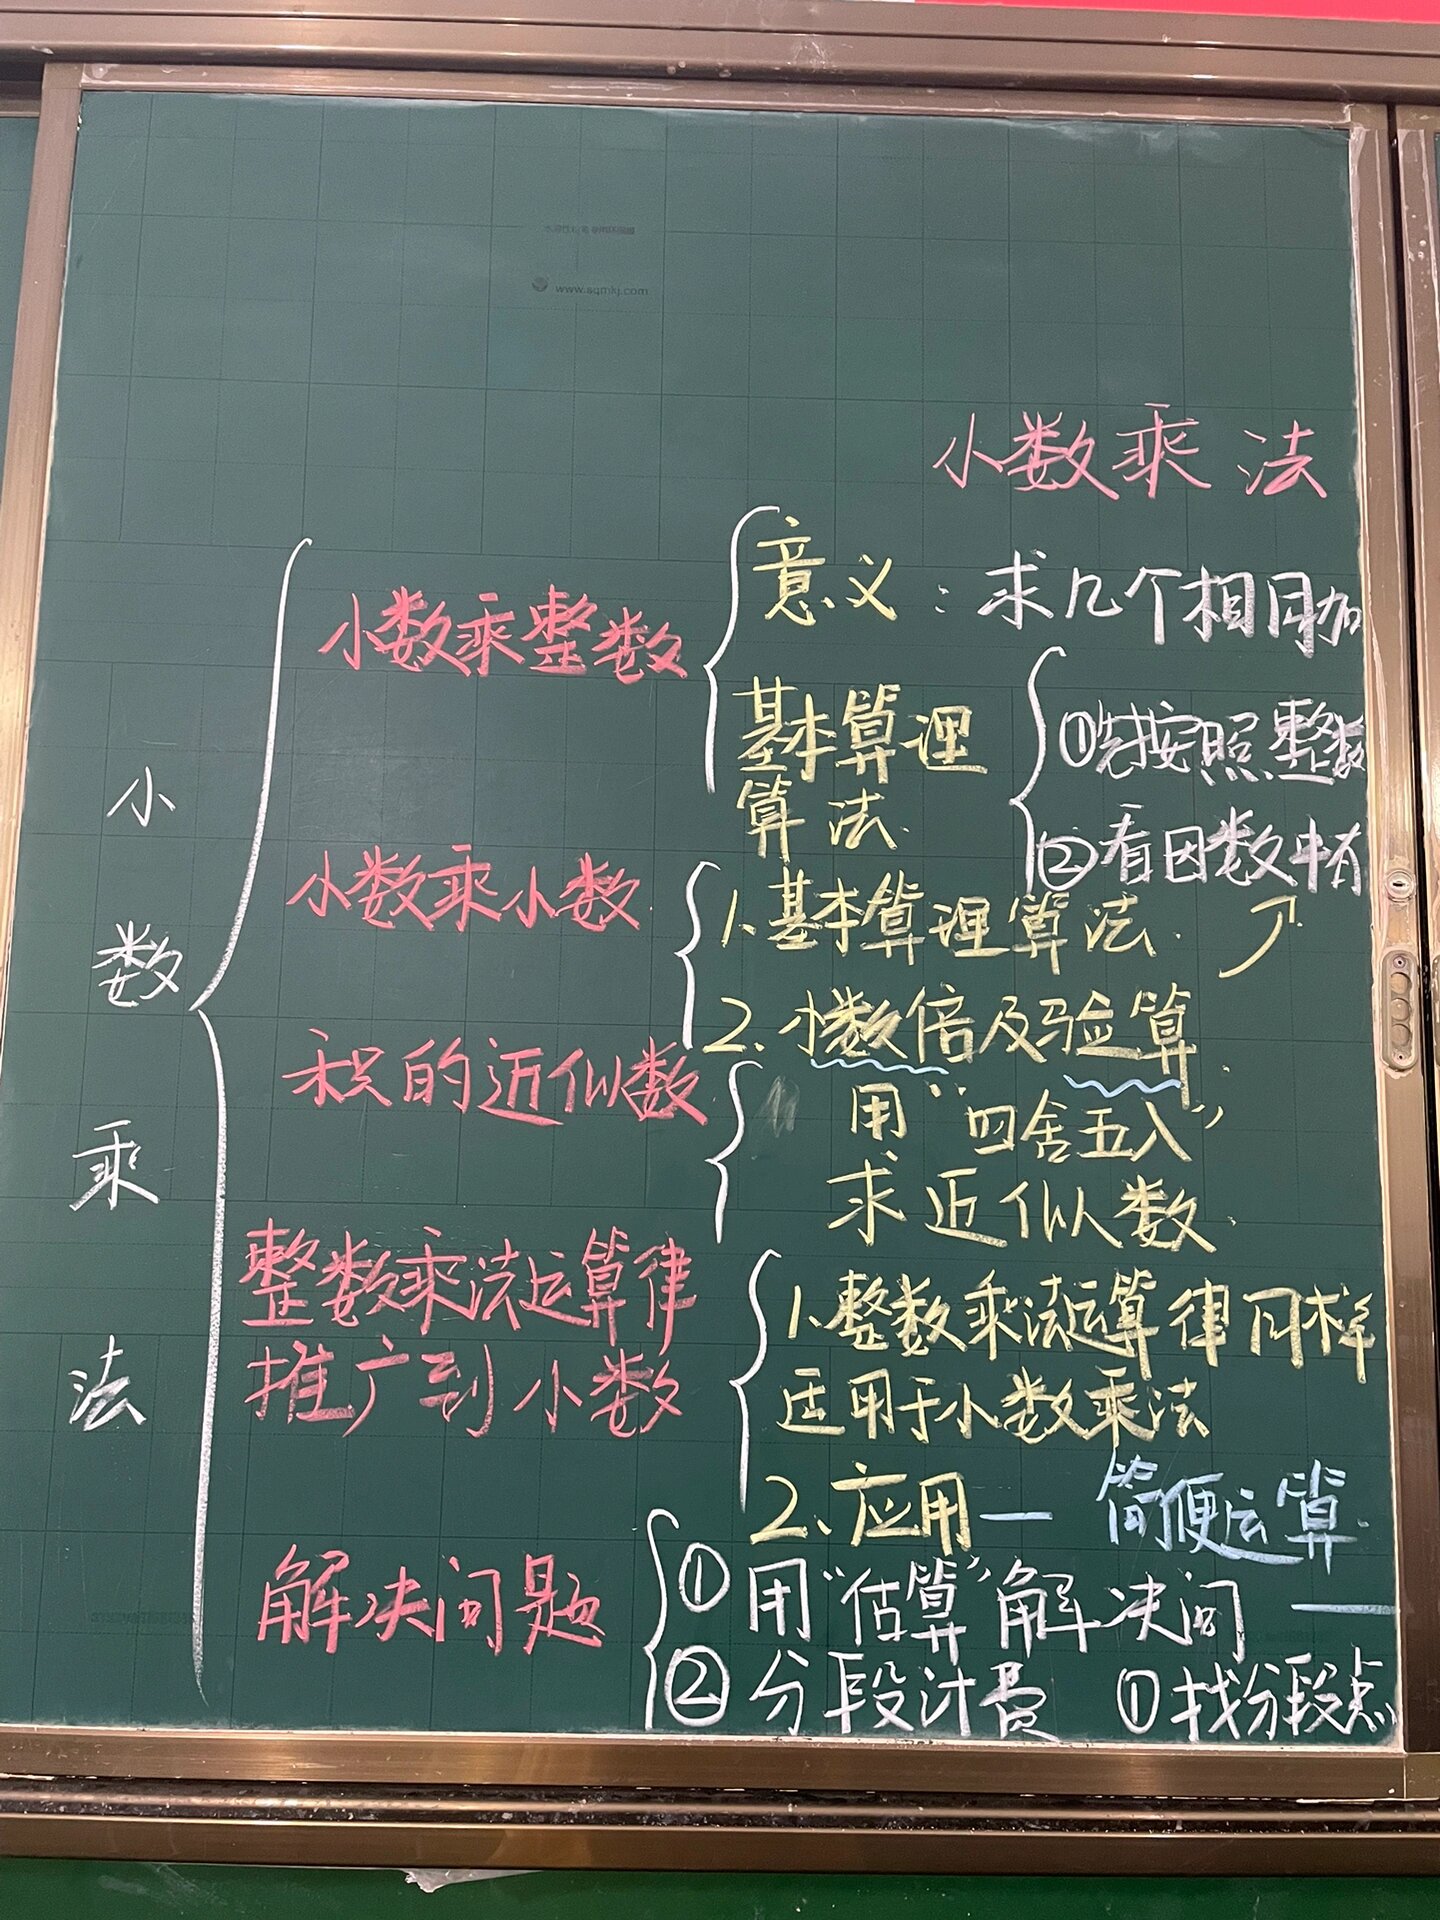 www.sqmkj.com
小数乘法
小数乘法
小数乘整数
意义：求几个相同加
基本算理
算法.
①先按照整数
②看因数中有
小数乘小数
1.基本算理算法.
2.小数倍及验算.
积的近似数
用“四舍五入”
求近似数.
整数乘法运算律
推广到小数
1.整数乘法运算律同样
适用于小数乘法
2、应用— 简便运算.
解决问题
①用“估算”解决问—
②分段计费 ①找分段点